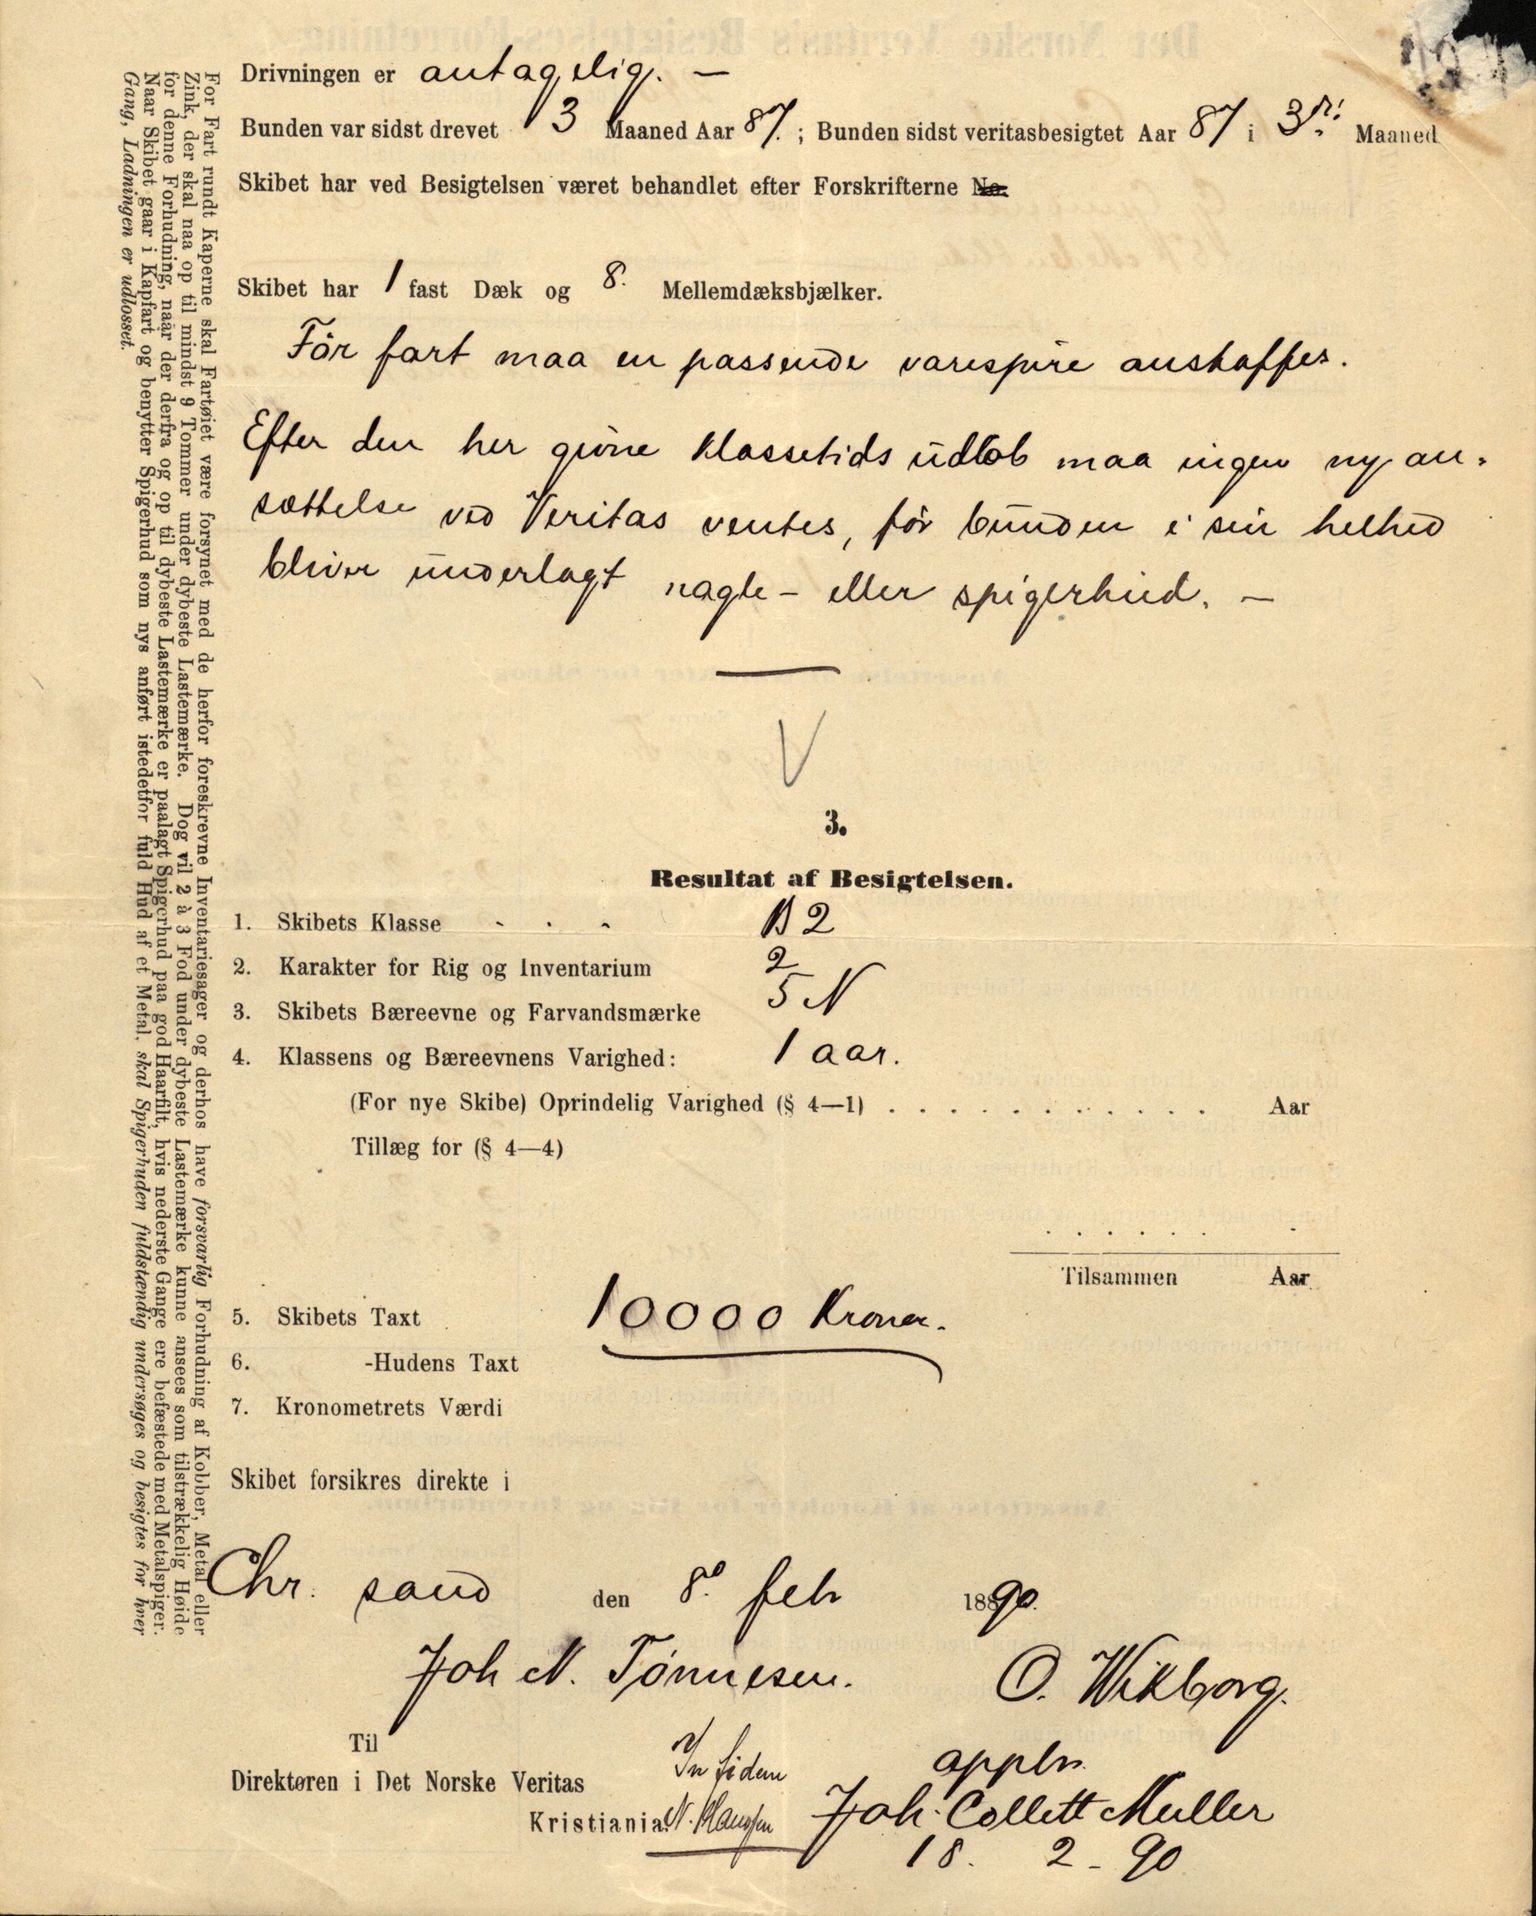 Drivningen er antagelig. —
Bunden var sidst drevet 3 Maaned Aar 87. ; Bunden sidst veritasbesigtet Aar 87 i 3di Maaned
Skibet har ved Besigtelsen været behandlet efter Forskrifterne No.
Skibet har 1 fast Dæk og 8. Mellemdæksbjælker.
Før fart maa en passende varespire anskaffes.
Efter den her givne Klassetids udløb maa ingen ny an-
sættelse ved Veritas ventes, før bunden i sin helhed
bliver underlagt nagle- eller spigerhud. —
V
3.
Resultat af Besigtelsen.
1. Skibets Klasse - . - B 2
2. Karakter for Rig og Inventarium 2
3. Skibets Bæreevne og Farvandsmærke 5 N
4. Klassens og Bæreevnens Varighed: 1 aar.
(For nye Skibe) Oprindelig Varighed (§ 4—1) . . . . . . . . . . . . Aar
Tillæg for (§ 4—4)
Tilsammen Aar
5. Skibets Taxt 10000 Kroner.
6. -Hudens Taxt
7. Kronometrets Værdi
Skibet forsikres direkte i
Chr. sand den 8. feb 1890.
Joh N. Tønnesen. O. Wikborg.
Til
Direktøren i Det Norske Veritas
Kristiania.
In fidem
N. Klaussen
appbr.
Joh. Collett Muller
18. 2 - 90
For Fart rundt Kaperne skal Fartøiet være forsynet med de herfor foreskrevne Inventariesager og derhos have forsvarlig Forhudning af Kobber, Metal eller
Zink, der skal naa op til mindst 9 Tommer under dybeste Lastemærke. Dog vil 2 à 3 Fod under dybeste Lastemærke kunne ansees som tilstrækkelig Høide
for denne Forhudning, naar der derfra og op til dybeste Lastemærke er paalagt Spigerhud paa god Haarfilt, hvis nederste Gange ere befæstede med Metalspiger.
Naar Skibet gaar i Kapfart og benytter Spigerhud som nys anført istedetfor fuld Hud af et Metal, skal Spigerhuden fuldstændig undersøges og besigtes for hver
Gang, Ladningen er udlosset.